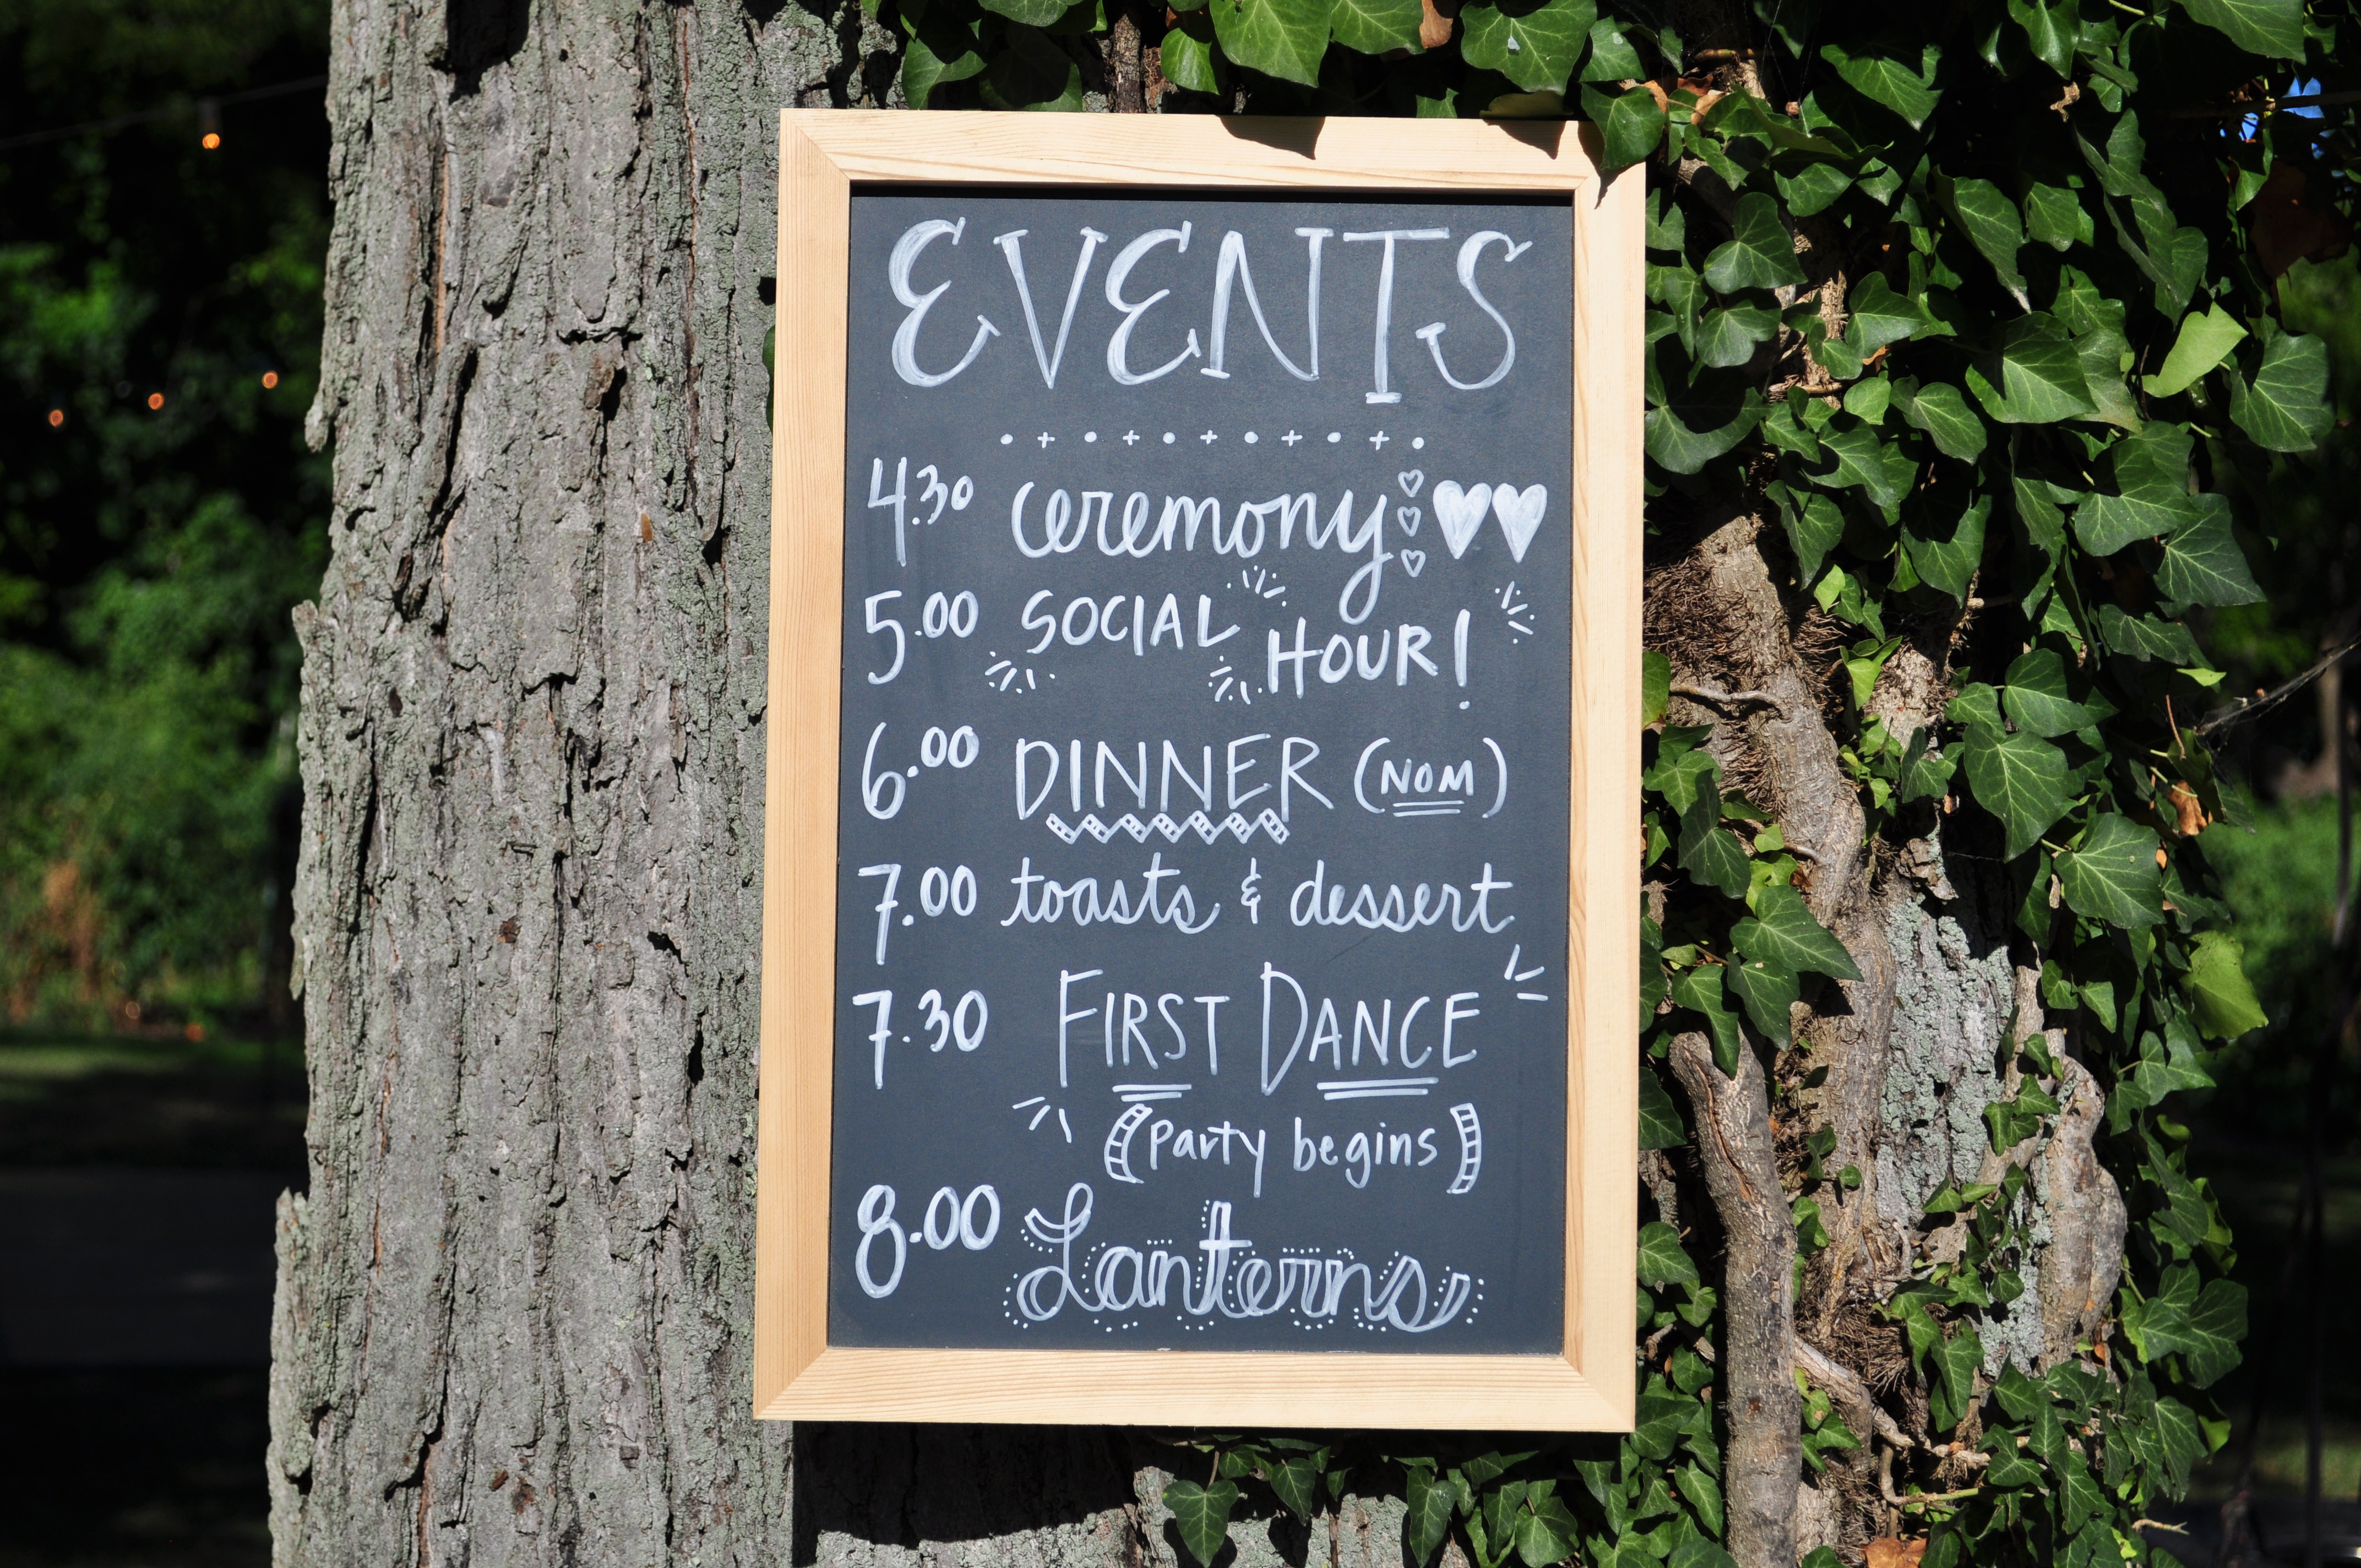 EVENTS
4.30 ceremony
5.00 SOCIAL HOUR!
6.00 DINNER (NOM)
7.00 toasts & dessert
7.30 FIRST DANCE
(party begins)
8.00 Lanterns